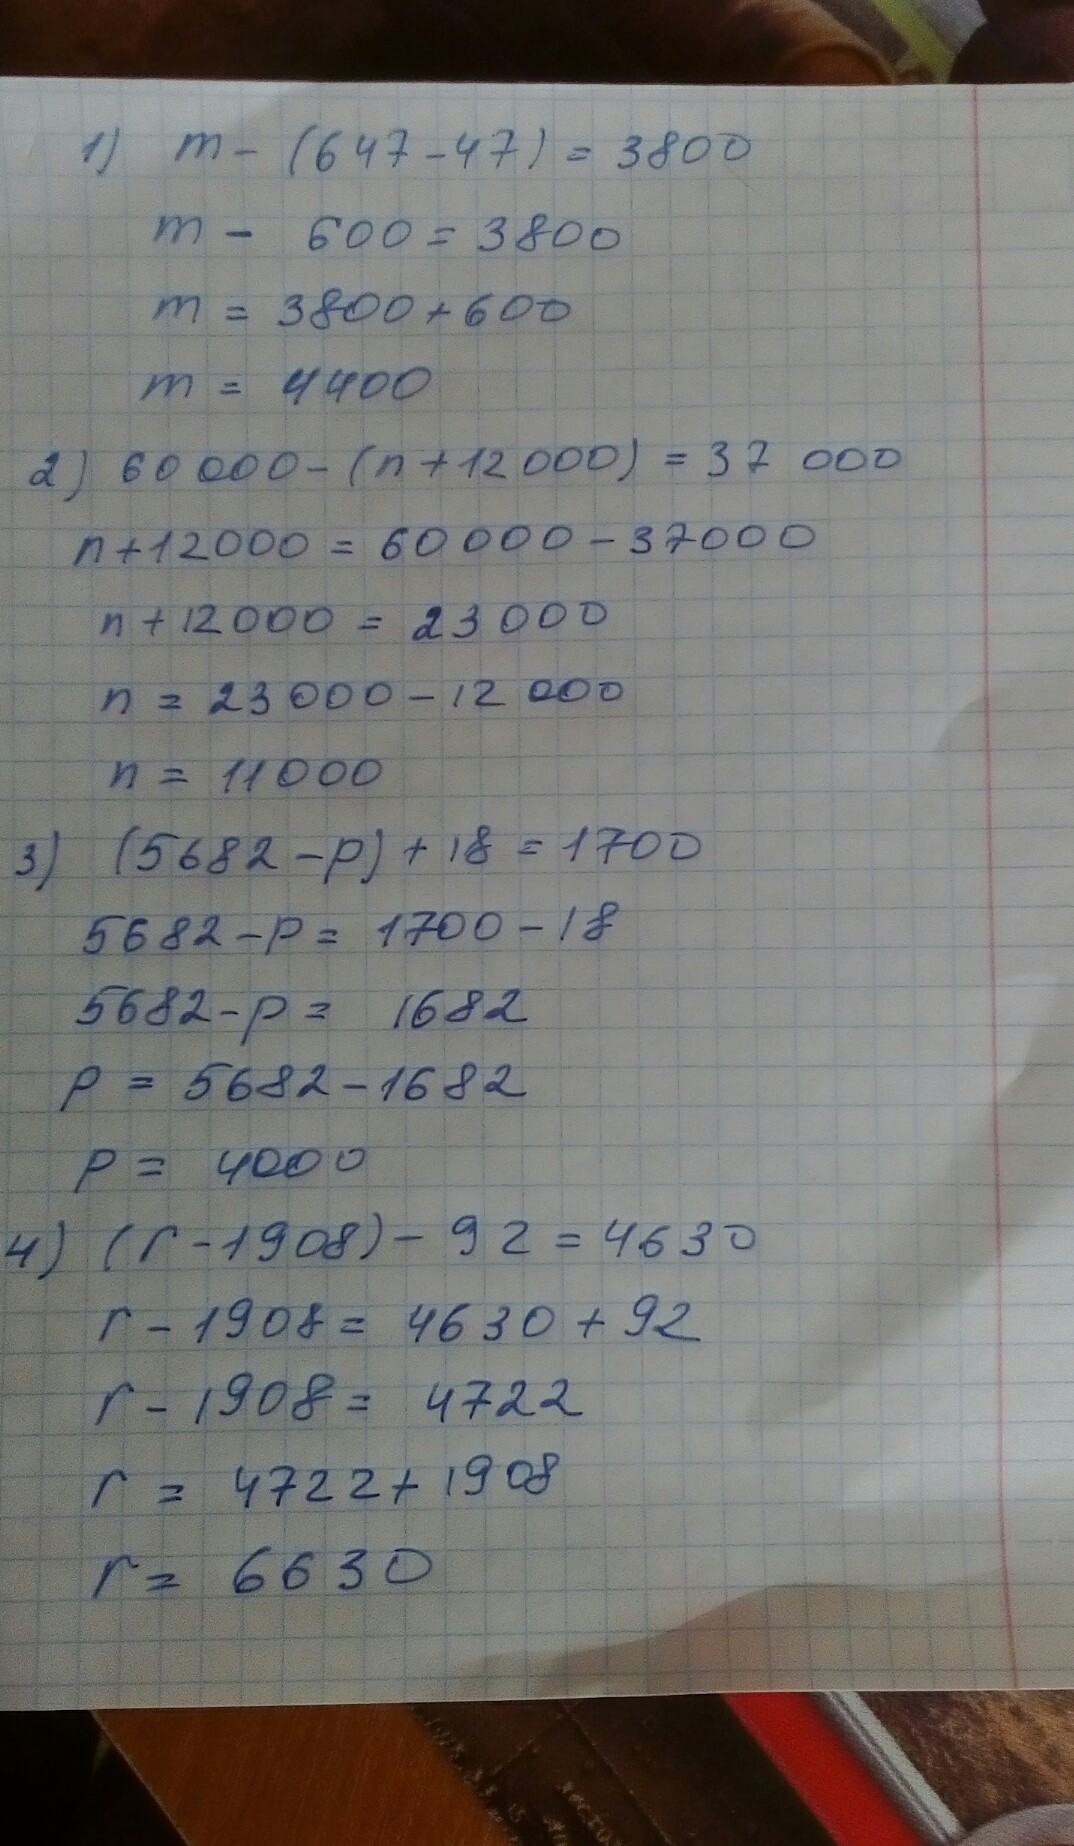 1) m - (647-47) = 3800
m - 600 = 3800
m = 3800+600
m = 4400
2) 60 000 - (n+12 000) = 37 000
n+12000 = 60 000 - 37000
n+12000 = 23 000
n = 23 000 - 12 000
n = 11000
3) (5682-p) + 18 = 1700
5682-p = 1700-18
5682-p = 1682
p = 5682-1682
p = 4000
4) (r-1908) - 92 = 4630
r - 1908 = 4630 + 92
r - 1908 = 4722
r = 4722 + 1908
r = 6630